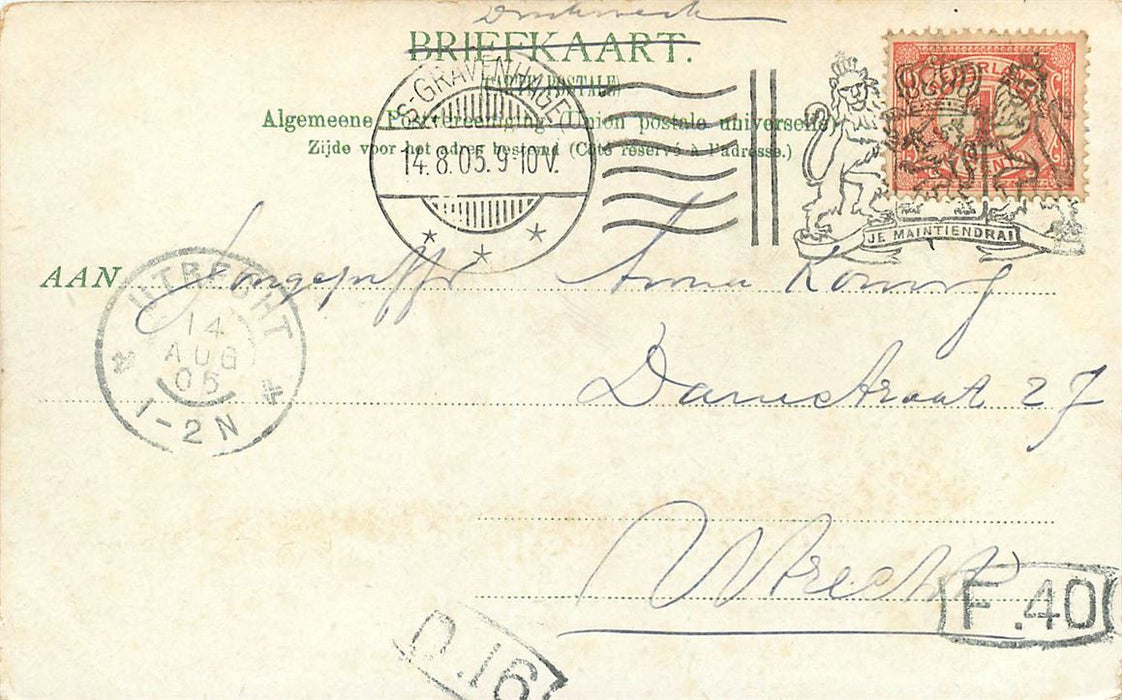 Drukwerk
BRIEFKAART.
(CARTE POSTALE)
Algemeene Postvereeniging (Union postale universelle)
Zijde voor het adres bestemd (Côté réservé à l'adresse.)
'S-GRAVENHAGE
14.8.05.9-10V.
JE MAINTIENDRAI
1
AAN Jongejuffr Anna Koning
UTRECHT
14
AUG
05
1-2N
Damstraat 27
Utrecht
F.40